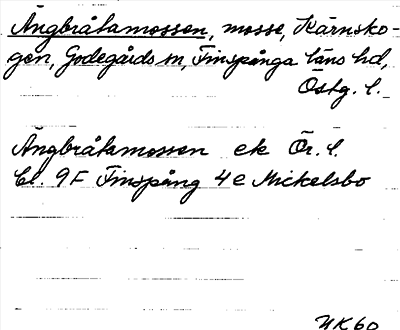 Ängbråtamossen, mosse, Kärnsko-
gen, Godegårds sn, Finspånga läns hd,
Östg. l.
Ängbråtamossen ek Ör. l.
Bl. 9F Finspång 4e Mickelsbo
NK60